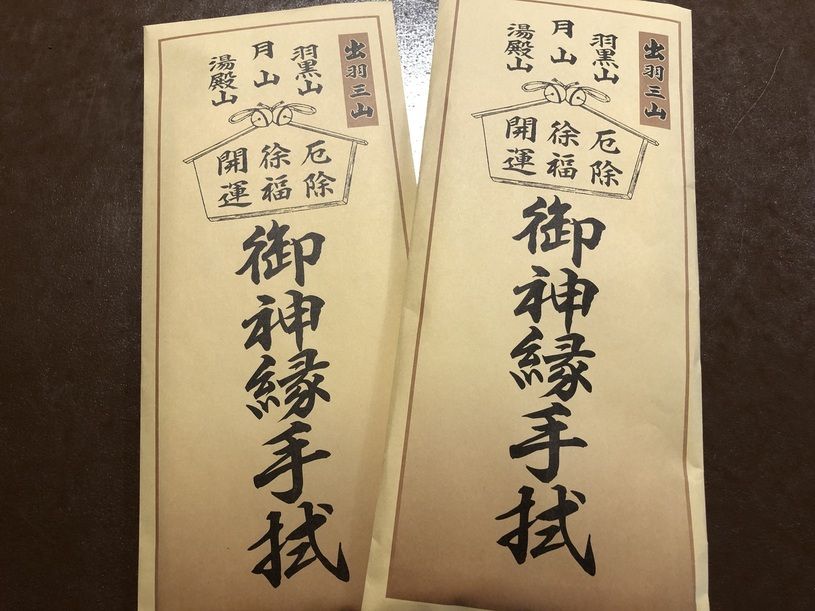 出羽三山
羽黒山
月山
湯殿山
厄除
徐福
開運
御神縁手拭
出羽三山
羽黒山
月山
湯殿山
厄除
徐福
開運
御神縁手拭